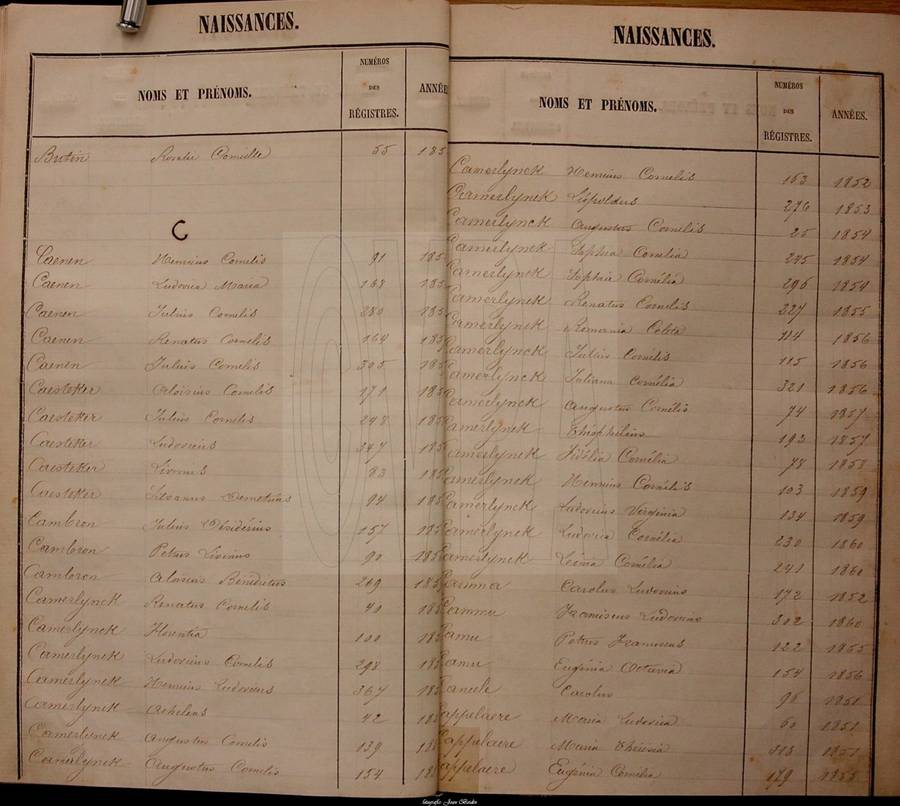 NAISSANCES.
NOMS ET PRÉNOMS.
NUMÉROS
DES
RÉGISTRES.
ANNÉE
Butin Rosalie Camille 55 185
C
Caenen Henricus Cornelis 91 185
Caenen Ludovica Maria 168 185
Caenen Julius Cornelis 280 185
Caenen Renatus Cornelis 164 185
Caenen Julius Cornelis 305 185
Caesteker Aloisius Cornelis 271 185
Caesteker Julius Cornelis 248 185
Caesteker Ludovicus 347 185
Caesteker 83 185
Caesteker Silvanus Demetrius 94 185
Cambron Julius Désidérius 157 185
Cambron Petrus Livinus 90 185
Cambron Aloisius Benedictus 269 185
Camerlynck Renatus Cornelis 40 185
Camerlynck Florentia 100 185
Camerlynck Ludovicus Cornelis 298 185
Camerlynck Henricus Ludovicus 367 185
Camerlynck 42 185
Camerlynck Augustus Cornelis 139 18
Camerlynck Augustus Cornelis 154 18
NAISSANCES.
NOMS ET PRÉNOMS.
NUMÉROS
DES
RÉGISTRES.
ANNÉES.
Camerlynck Henricus Cornelis 163 1852
Camerlynck Leopoldus 276 1853
Camerlynck Augustus Cornelis 25 1854
Camerlynck Sophia Cornelia 245 1854
Camerlynck Sophia Cornélia 296 1854
Camerlynck Renatus Cornelis 227 1855
Camerlynck Romania Coleta 114 1856
Camerlynck Julius Cornélis 115 1856
Camerlynck Juliana Cornélia 321 1856
Camerlynck Augustus Cornélis 74 1857
Camerlynck Théophilus 192 1857
Camerlynck Fidélia Cornélia 78 1858
Camerlynck Henricus Cornélis 103 1859
Camerlynck Ludovicus Virginia 134 1859
Camerlynck Ludovica Cornélia 230 1860
Camerlynck Leonia Cornélia 241 1860
Carolus Ludovicus 172 1852
Franciscus Ludovicus 302 1860
Petrus Franciscus 122 1855
Eugénia Octavia 154 1856
Carolus 96 1851
Cappelaere Maria Ludovica 60 1851
Cappelaere Maria Théresia 1851
Cappelaere Eugénia Cornélia 179 1855